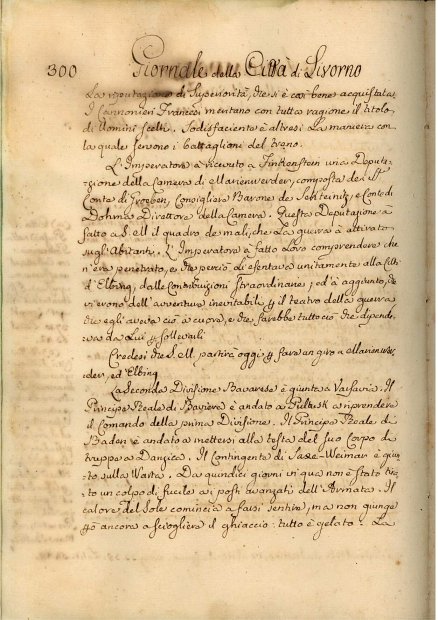 300 Giornale della Città di Livorno
La riputazione di Superiorità, che si è così bene acquistata.
I Cannonieri Francesi meritano con tutta ragione il titolo
di Uomini scelti. Sodisfaciente è altresì la maniera con
la quale servono i battaglioni del treno.
L'Imperatore à ricevuto a Finkenstein una Deputa
zione della Camera di Marienwerder, composta de SS.
Conte di Groeben, Consigliere Barone de e Conte di
Dohma Direttore della Camera. Questa Deputazione à
fatto a S. M. il quadro de mali, che la guerra à attirato
sugl'Abitanti. L'Imperatore à fatto loro comprendere che
n'era penetrato, e che perciò l'esentava unitamente alla Città
d'Elbing, dalle Contribuzioni straordinarie; ed à aggiunto, che
vi erono dell'avventure inevitabili p il teatro della guerra
che egli aveva ciò a cuore, e che farebbe tutto ciò che dipende
va da Lui p sollevarli
Credesi che S. M. partirà oggi p fare un giro a Marienwer
der, ed Elbing
La Seconda Divisione Bavarese è giunta a Varsavia. Il
Principe Reale di Baviera è andato a Pultusk a riprendere
il Comando della prima Divisione. Il Principe Reale di
Baden è andato a mettersi alla testa del suo Corpo di
truppe a Danzica. Il Contingente di Saxe-Weimar è giun
to sulla Warta. Da quindici giorni in qua non è stato tira
to un colpo di fucile ai posti avanzati dell'Armata. Il
calore del Sole comincia a farsi sentire, ma non giunge
p ancora a sciogliere il ghiaccio: tutto è gelato. La